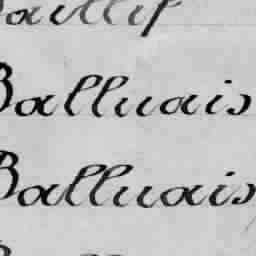 Baillif
Balluais
Balluais